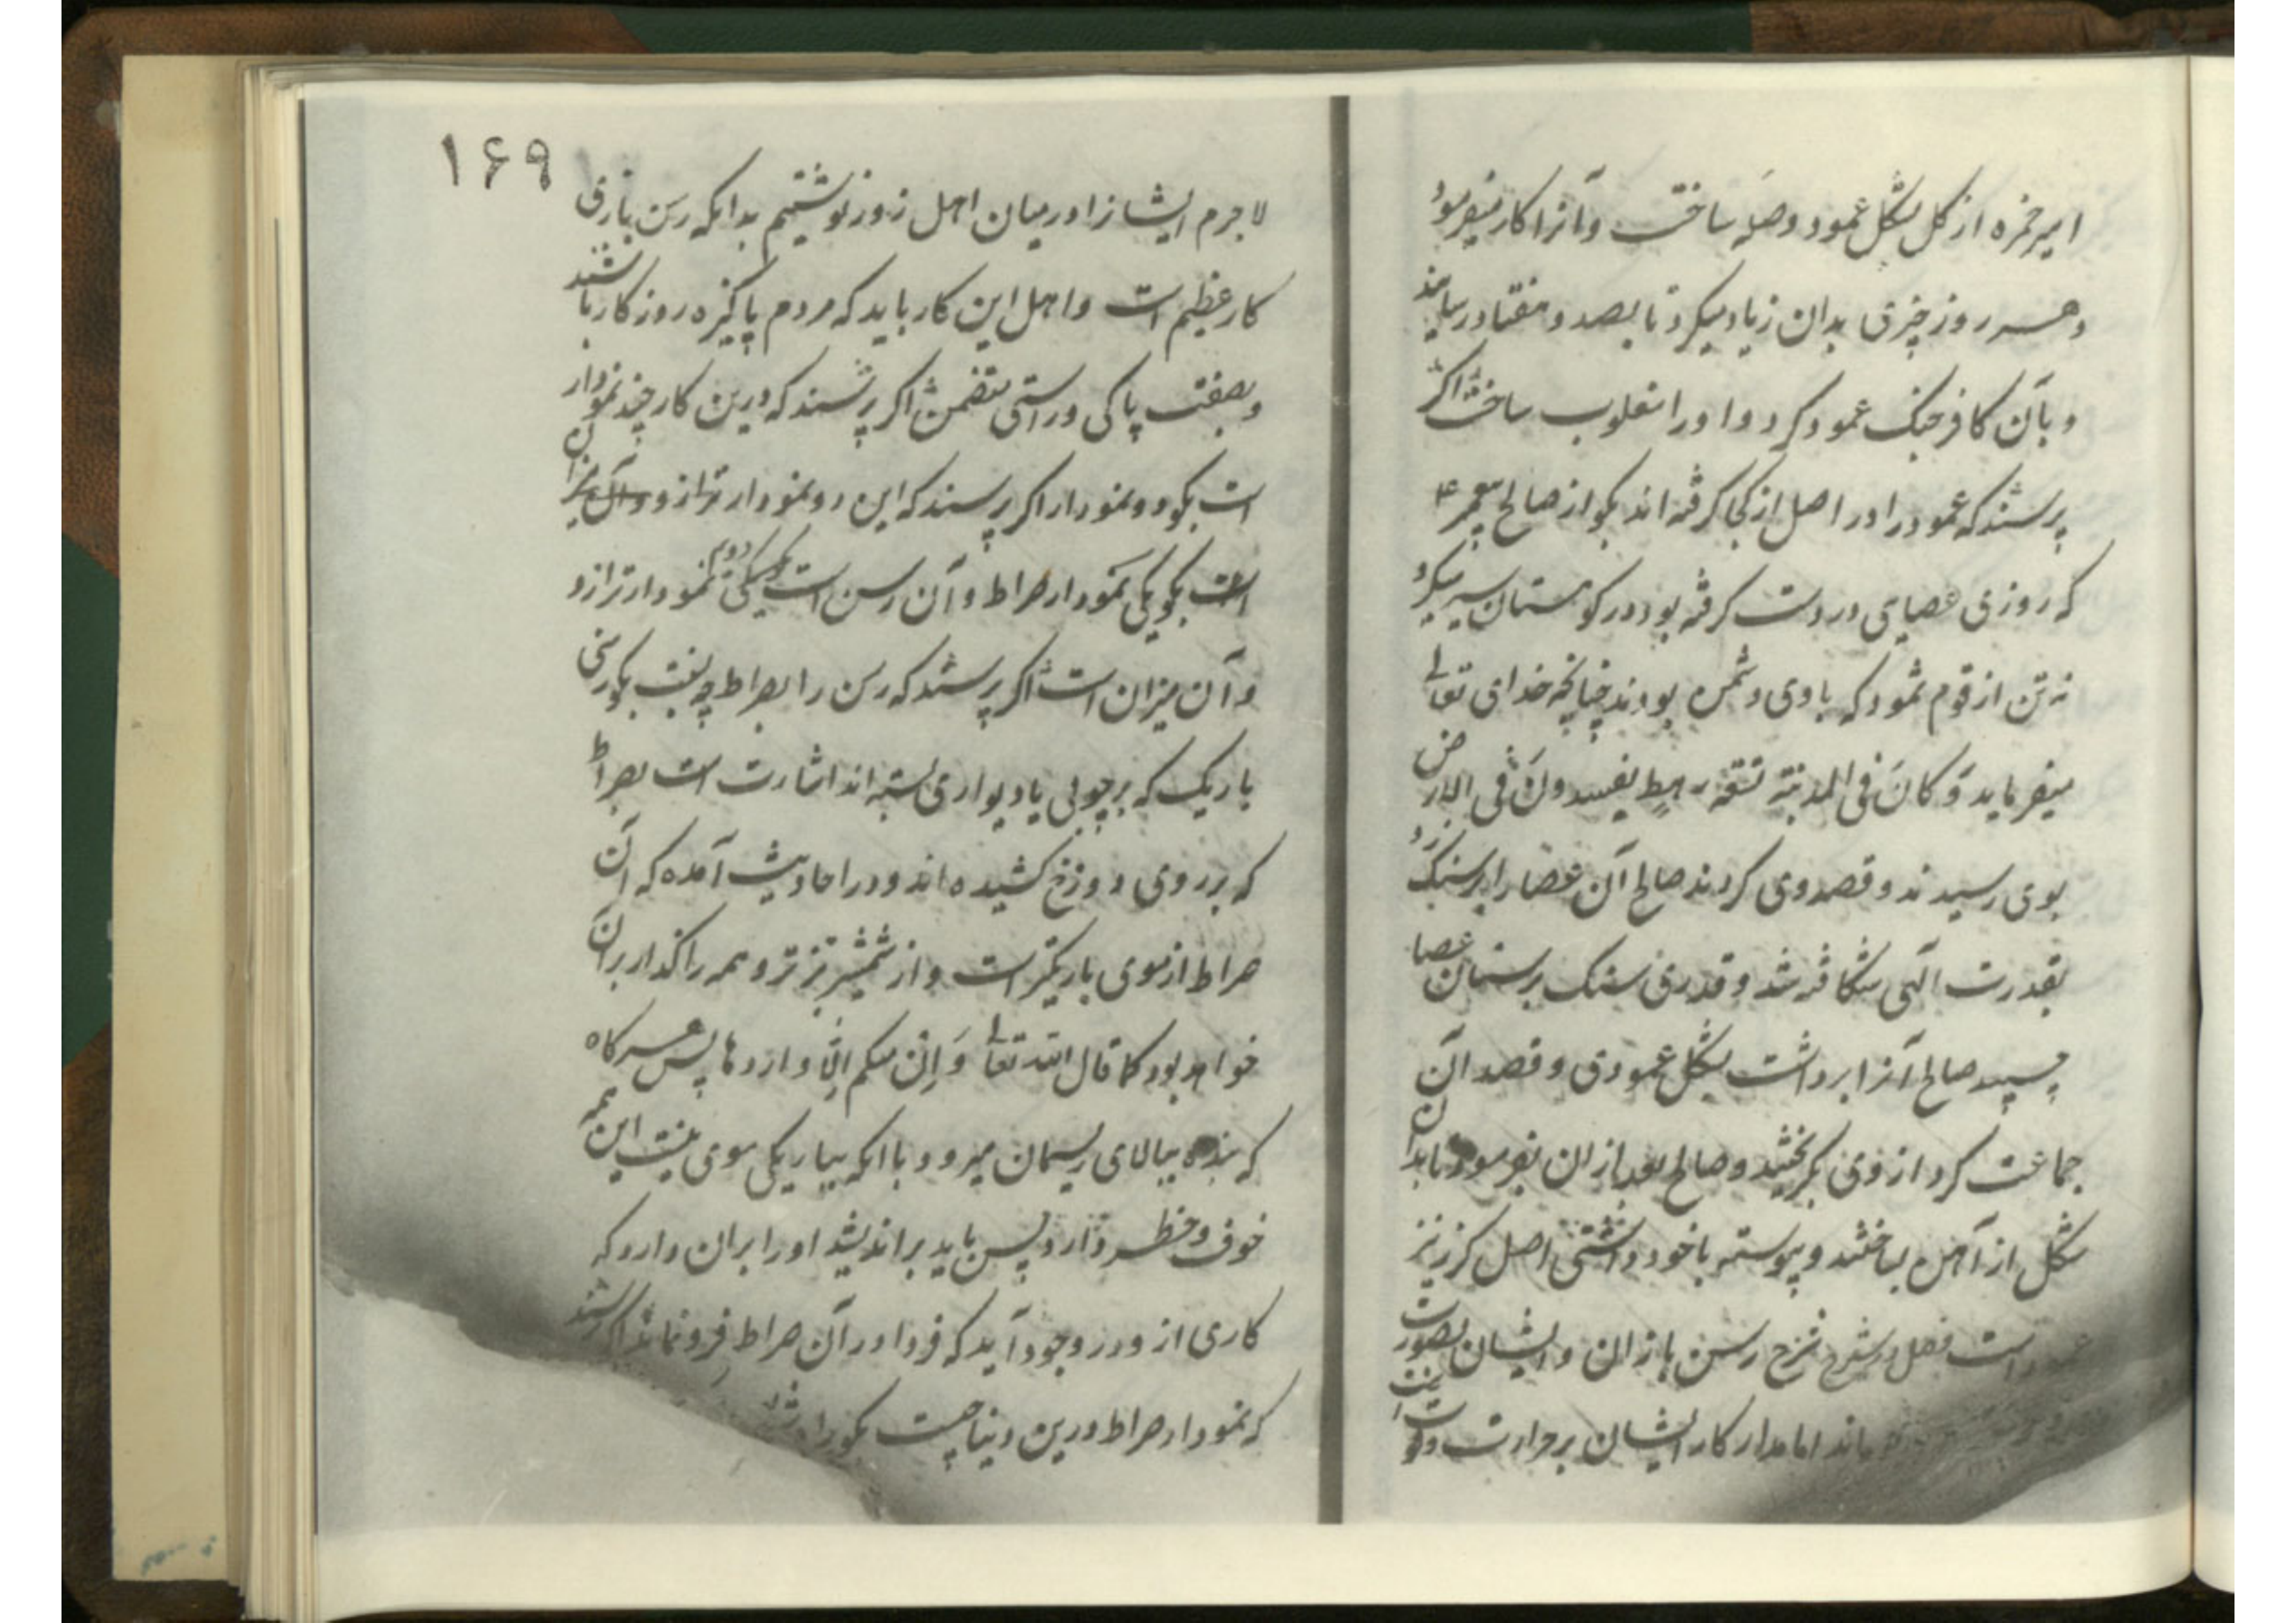 امیر حمزه از کل بشکل عمود وصله ساخت و آنرا کار میفرمود
و هر روز چیزی بدان زیاد میکرد تا بصد و هفتاد رسانید
و بآن کافر جنک عمود کرد و او را مغلوب ساخت اکر
پرسند که عمود را در اصل از کجا کرفته اند بکو از صالح پیغمبر ع
که روزی عصای در دست کرفته بود در کوهستان سیر میکرد
نه تن از قوم ثمود که با وی دشمن بودند چنانچه خدای تعالی
میفرماید وَکانَ فی المدینة تسعَة رهطٍ یفسدونَ فی الارض
بوی رسیدند و قصد وی کردند صالح آن عصا را بر سنک زد
بقدرت الهی شکافته شد و قدری سنک بر سنان عصا
چسپید صالح آنرا برداشت بشکل عمودی و قصد آن
جماعت کرد از وی بکریختند و صالح بعد از ان بفرمود تا بدان
شکل از آهن بساختند و پیوسته با خود داشتی اصل کرز نیز
است فصل در شرح رسن بازان و ایشان بصورت
ماند اما مدار کار ایشان بر حرارت و قوت است
۱۶۹
لاجرم ایشانرا در میان اهل زور نوشتیم بدانکه رسن بازی
کار عظیم است و اهل این کار باید که مردم پاکیزه روزکار باشند
و بصفت پاکی و راستی متصف اکر پرسند که درین کار چند نمودار
است بکو دو نمودار اکر پرسند که این دو نمودار ترازو و آن میزان
است بکو یکی نمودار صراط و آن رسن است دوم نمودار ترازو
و آن میزان است اکر پرسند که رسن را بصراط چه نسبت بکو رسنی
باریک که بر چوبی یا دیواری بسته اند اشارت است بصراط
که بر روی دوزخ کشیده اند و در احادیث آمده که آن
صراط از موی باریکتر است و از شمشیر تیزتر و همه را کذار بر آن
خواهد بود کما قال الله تعالی وَاِن منکم اِلّا واردها پس هر کاه
که بنده ببالای ریسمان میرود و با آنکه بباریکی موی نیست این همه
خوف و خطر دارد پس باید براندیشد او را بران دارد که
کاری از و در وجود آید که فردا در آن صراط فرو نماند اکر پرسند
که نمودار صراط درین دنیا چیست بکو راه